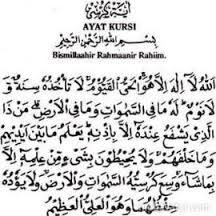 آيَةُ الْكُرْسِيِّ
AYAT KURSI
بِسْمِ اللهِ الرَّحْمٰنِ الرَّحِيْمِ
Bismillaahir Rahmaanir Rahiim.
اَللهُ لَا إِلٰهَ إِلَّا هُوَ الْحَيُّ الْقَيُّوْمُ لَا تَأْخُذُهُ سِنَةٌ وَ
لَا نَوْمٌ لَهُ مَا فِي السَّمٰوَاتِ وَمَا فِي الْأَرْضِ مَنْ ذَا
الَّذِيْ يَشْفَعُ عِنْدَهُ إِلَّا بِإِذْنِهِ يَعْلَمُ مَا بَيْنَ أَيْدِيْهِمْ
وَمَا خَلْفَهُمْ وَلَا يُحِيْطُوْنَ بِشَيْءٍ مِنْ عِلْمِهِ إِلَّا
بِمَا شَاءَ وَسِعَ كُرْسِيُّهُ السَّمٰوَاتِ وَالْأَرْضَ وَلَا يَؤُوْدُهُ
حِفْظُهُمَا وَهُوَ الْعَلِيُّ الْعَظِيْمُ